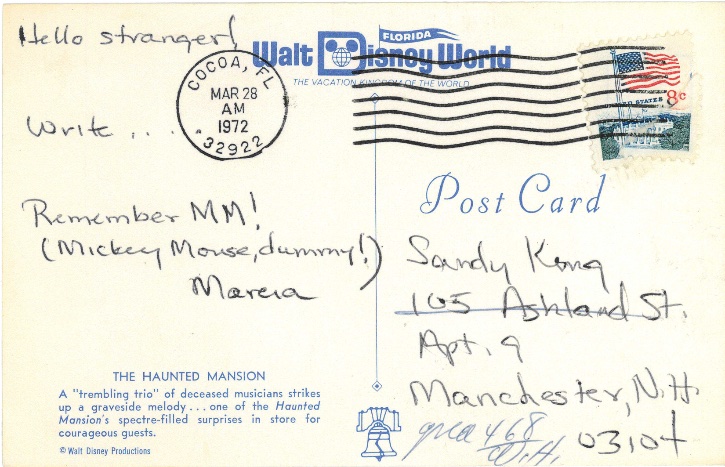 Hello stranger!
Write ....
Remember MM!
(Mickey Mouse, dummy!)
Marcia
THE HAUNTED MANSION
A "trembling trio" of deceased musicians strikes
up a graveside melody . . . one of the Haunted
Mansion's spectre-filled surprises in store for
courageous guests.
© Walt Disney Productions
FLORIDA
Walt Disney World
THE VACATION KINGDOM OF THE WORLD
COCOA, FL
MAR 28
AM
1972
32922
UNITED STATES 8c
Post Card
Sandy Kong
105 Ashland St.
Apt. 9
Manchester, N.H.
03104
468